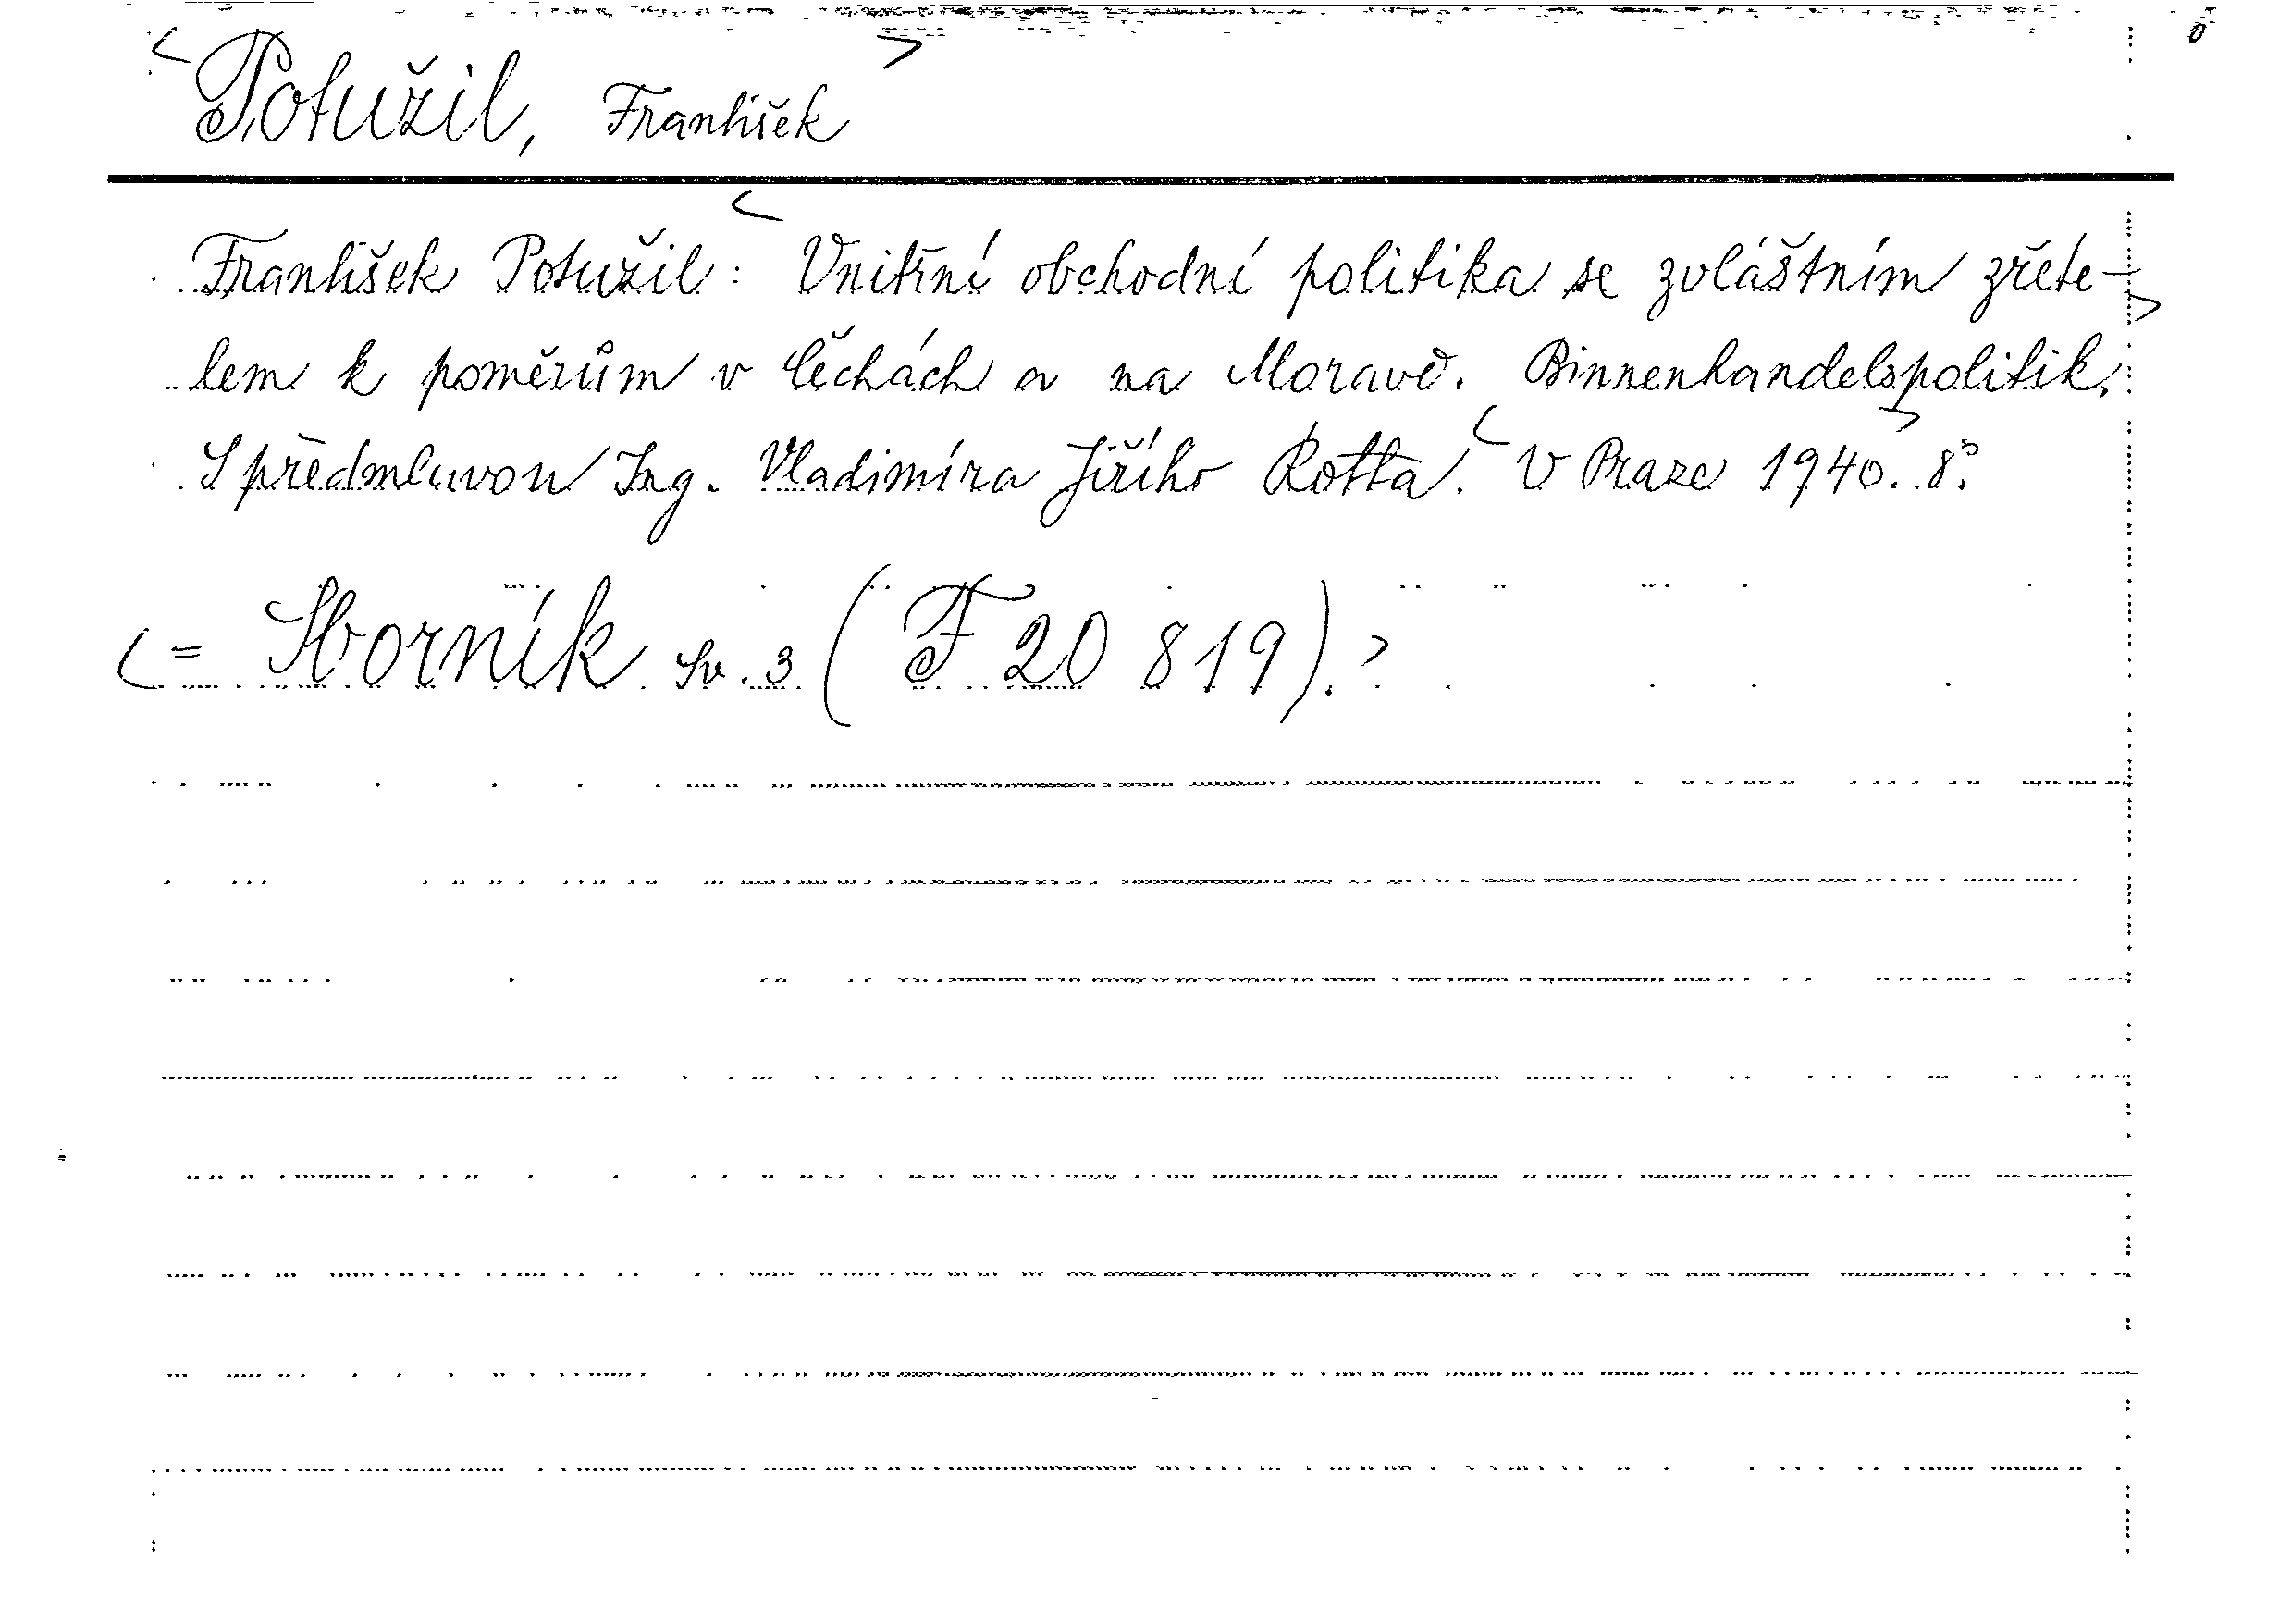 <Potužil, František>
František Potužil: <Vnitřní obchodní politika se zvláštním zřete->
lem k poměrům v Čechách a na Moravě. Binnenhandelspolitik.
S předmluvou Ing. Vladimíra Jiřího Rotta. <V Praze 1940.> 8°.
<= Sborník sv. 3 (F 20 819).>